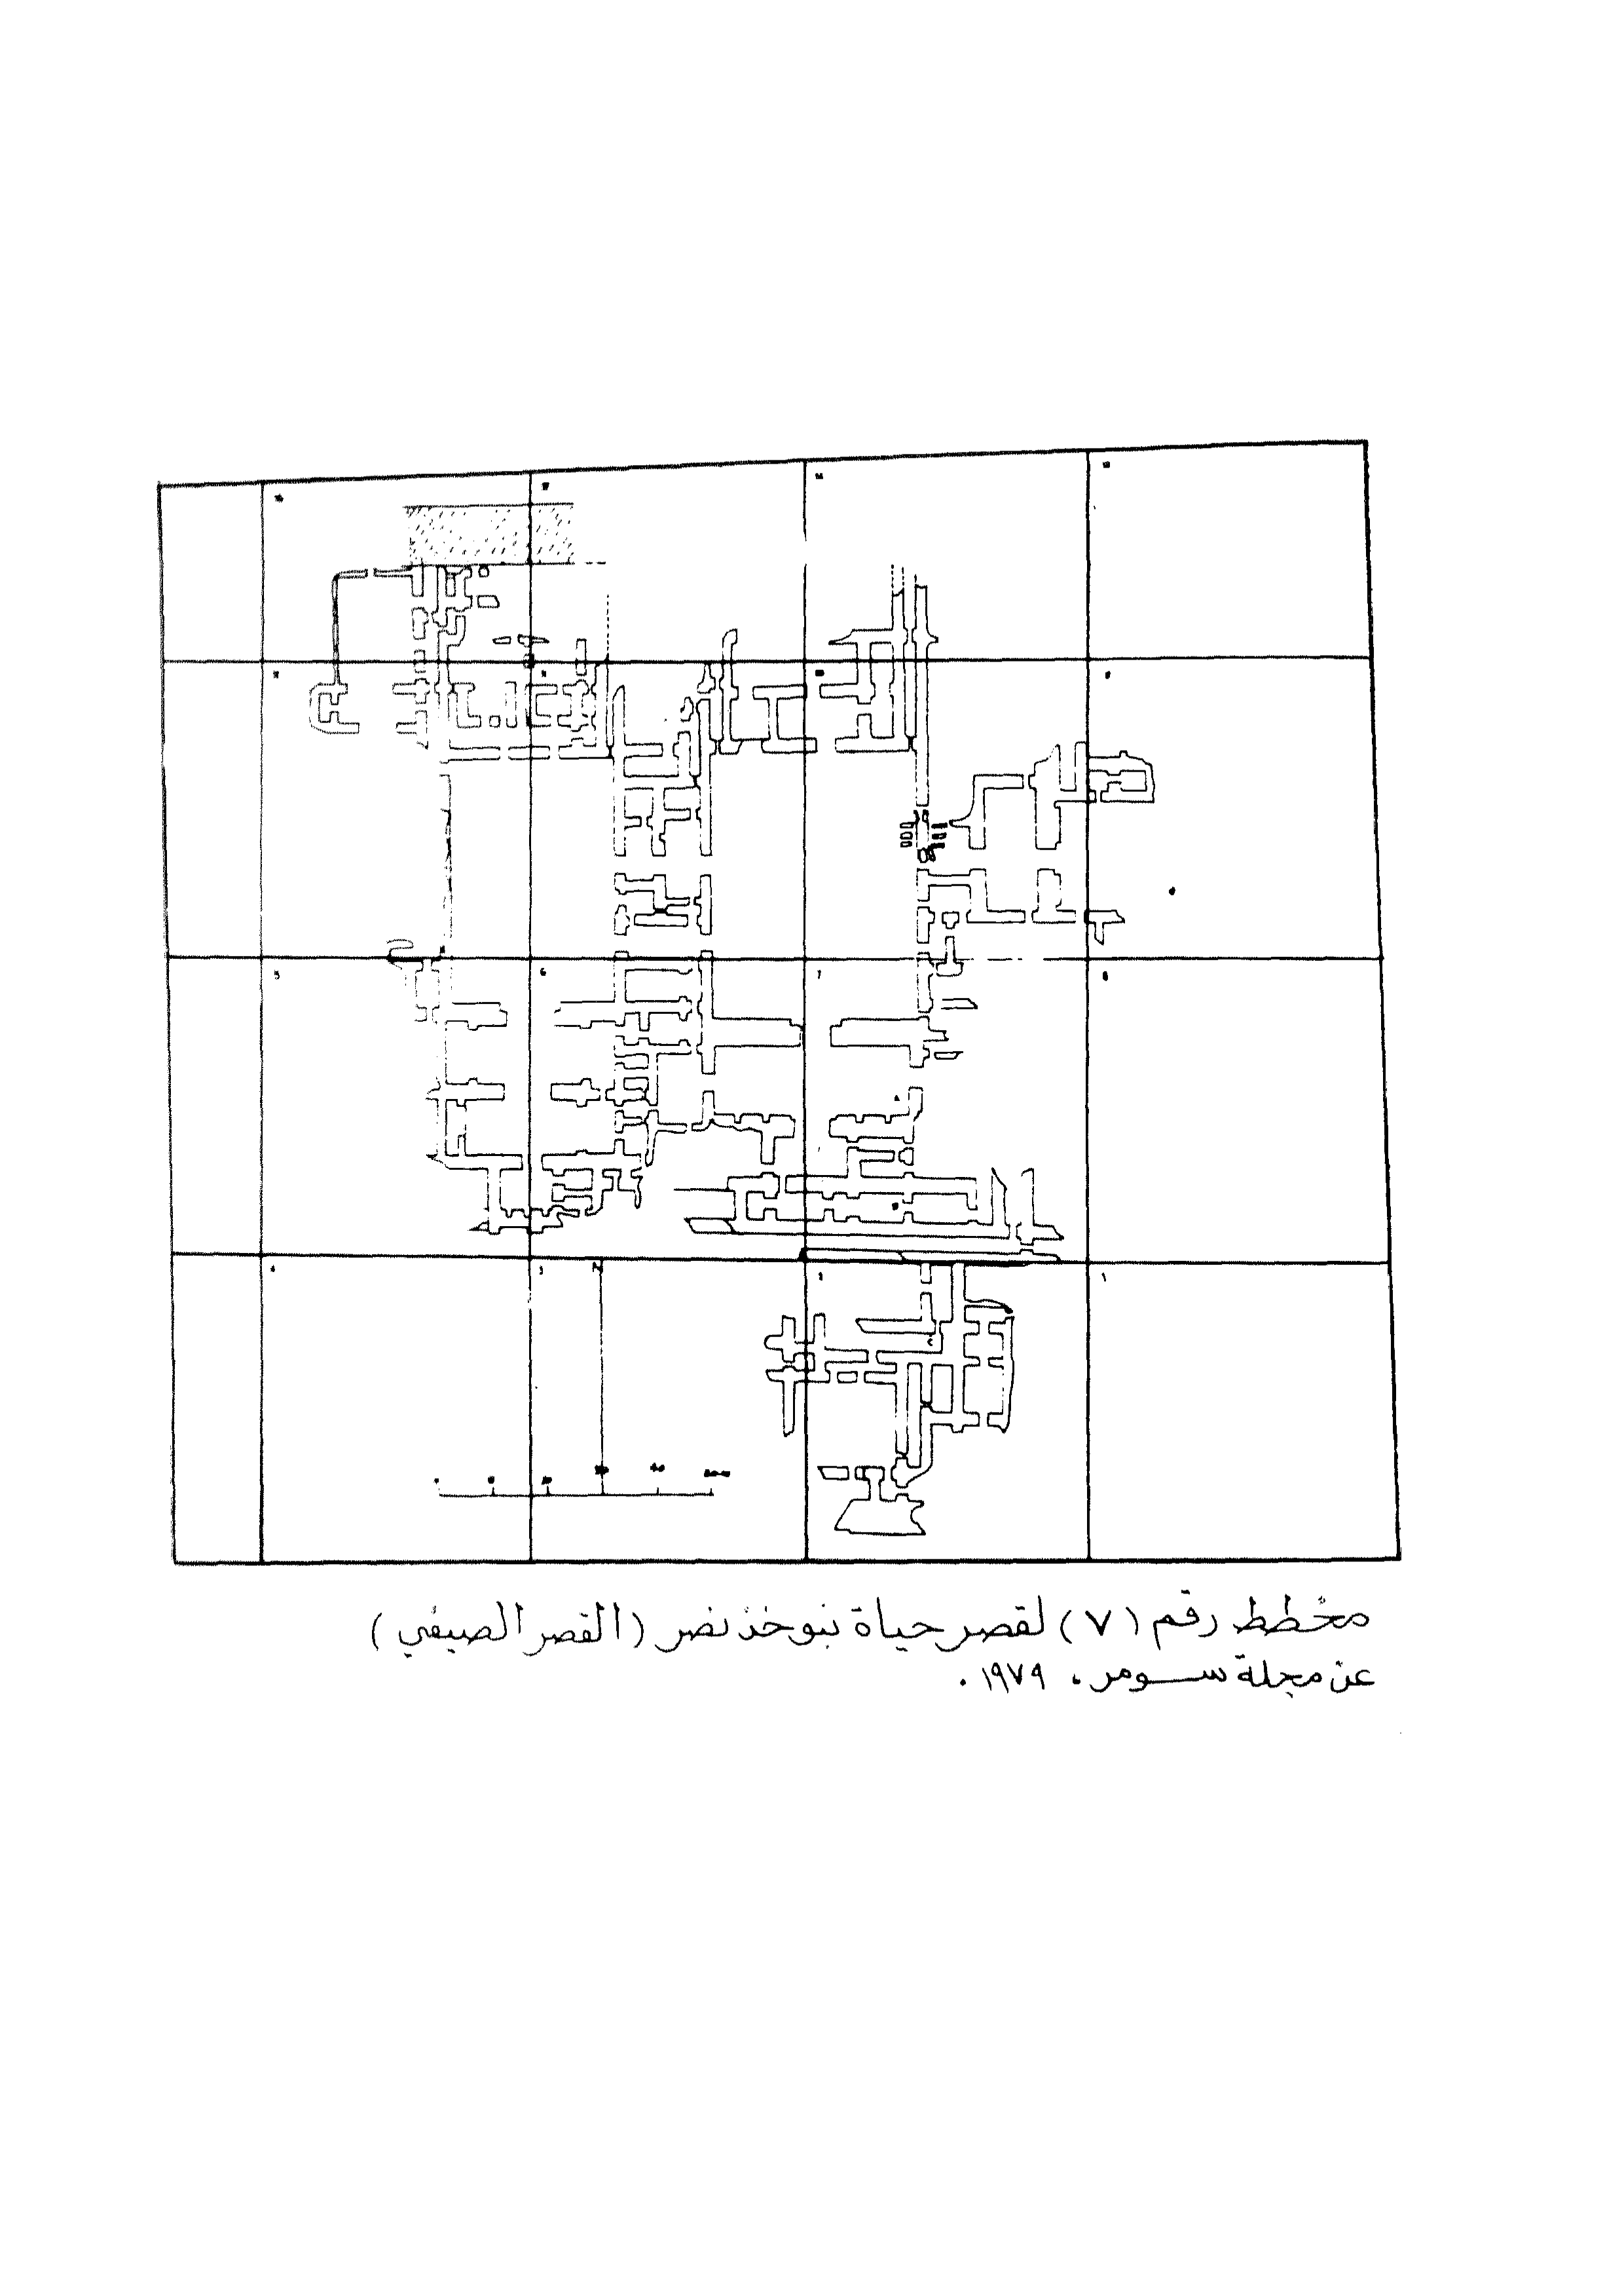 مخطط رقم (٧) لقصر حياة نبوخذ نصر (القصر الصيفي)
عن مجلة سومر، ١٩٧٩.